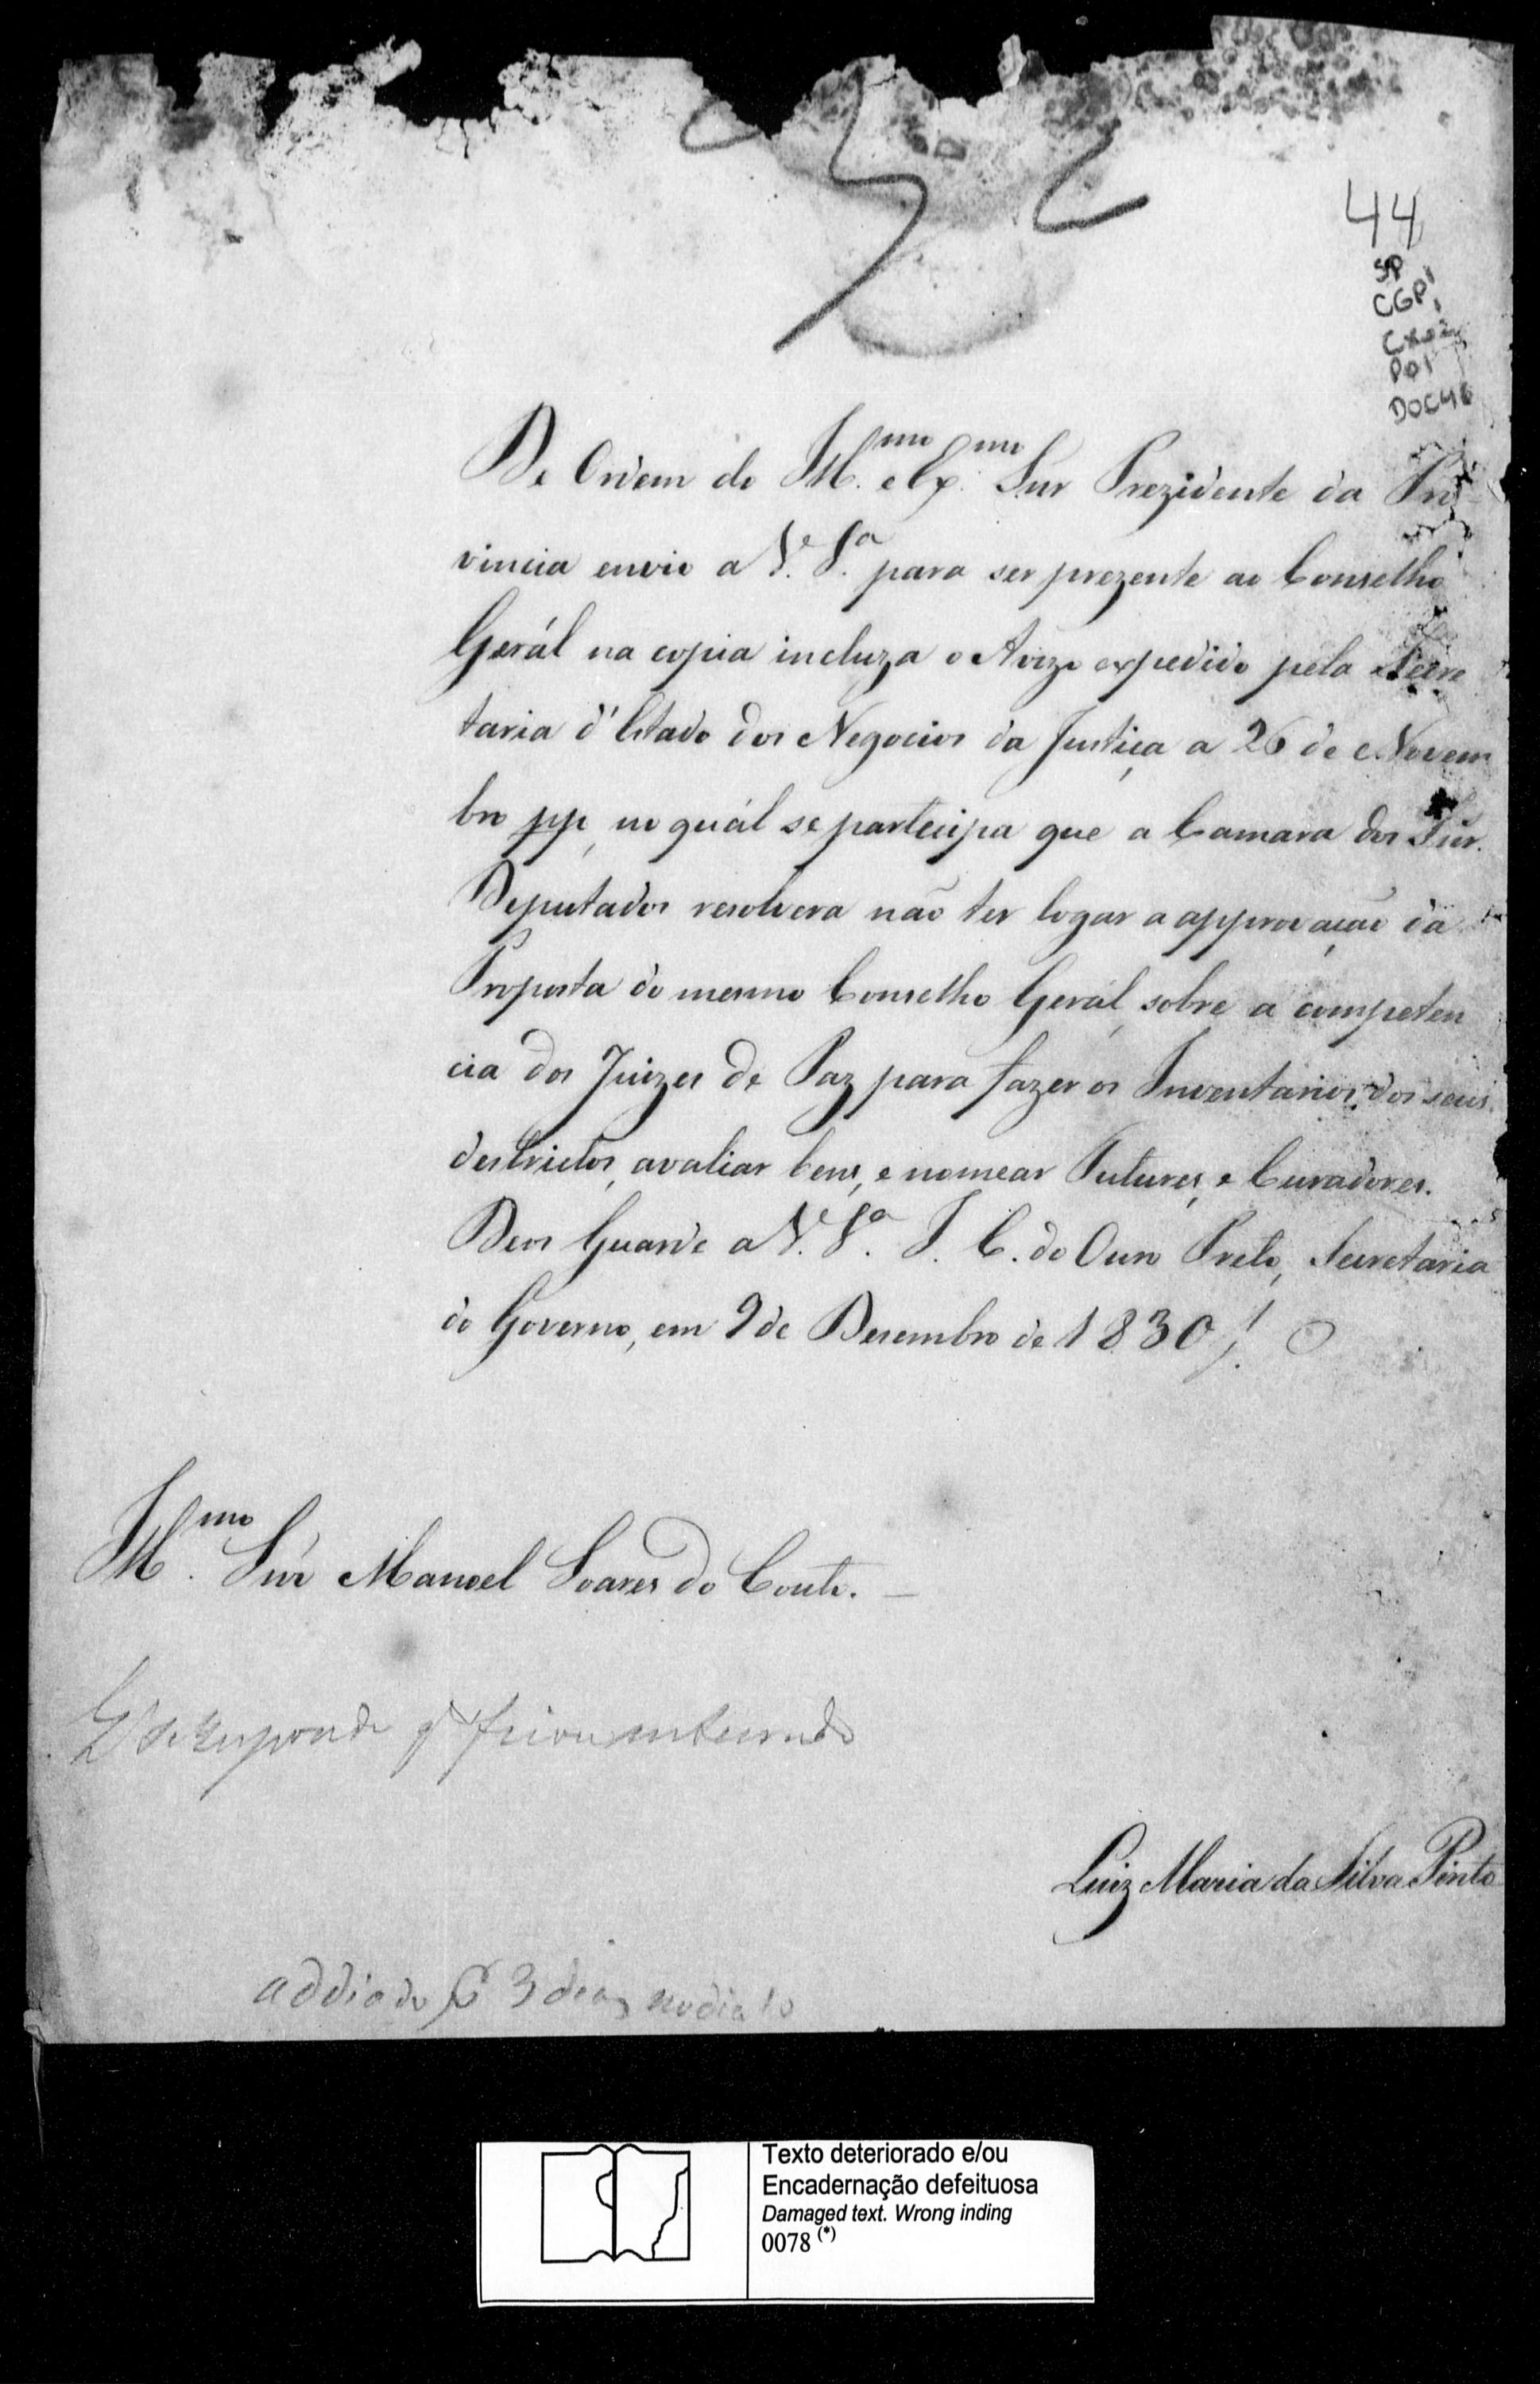 44
SP
CGP1
CX02
P01
DOC46
De Ordem do Ill.mo e Ex.mo Snr Prezidente da Pro-
vincia envio a V. S.a para ser prezente ao Conselho
Gerál na copia incluza o Avizo expedido pela Secre
taria d'Estado dos Negocios da Justiça a 26 de Novem
bro pp, no quál se participa que a Camara dos Snr.
Deputados resolvera não ter logar a approvação da
Proposta do mesmo Conselho Geral, sobre a competen
cia dos Juizes de Paz para fazer os Inventarios dos seus
destrictos, avaliar bens, e nomear Tutores, e Curadores.
Deos Guarde a V. S.a I. C. do Ouro Preto, Secretaria
do Governo, em 9 de Desembro de 1830
Ill.mo Snr Manoel Soares do Couto.
Responda q ficou inteirado
Luiz Maria da Silva Pinto
addiado 3 dias no dia 10
Texto deteriorado e/ou
Encadernação defeituosa
Damaged text. Wrong inding
0078 (*)